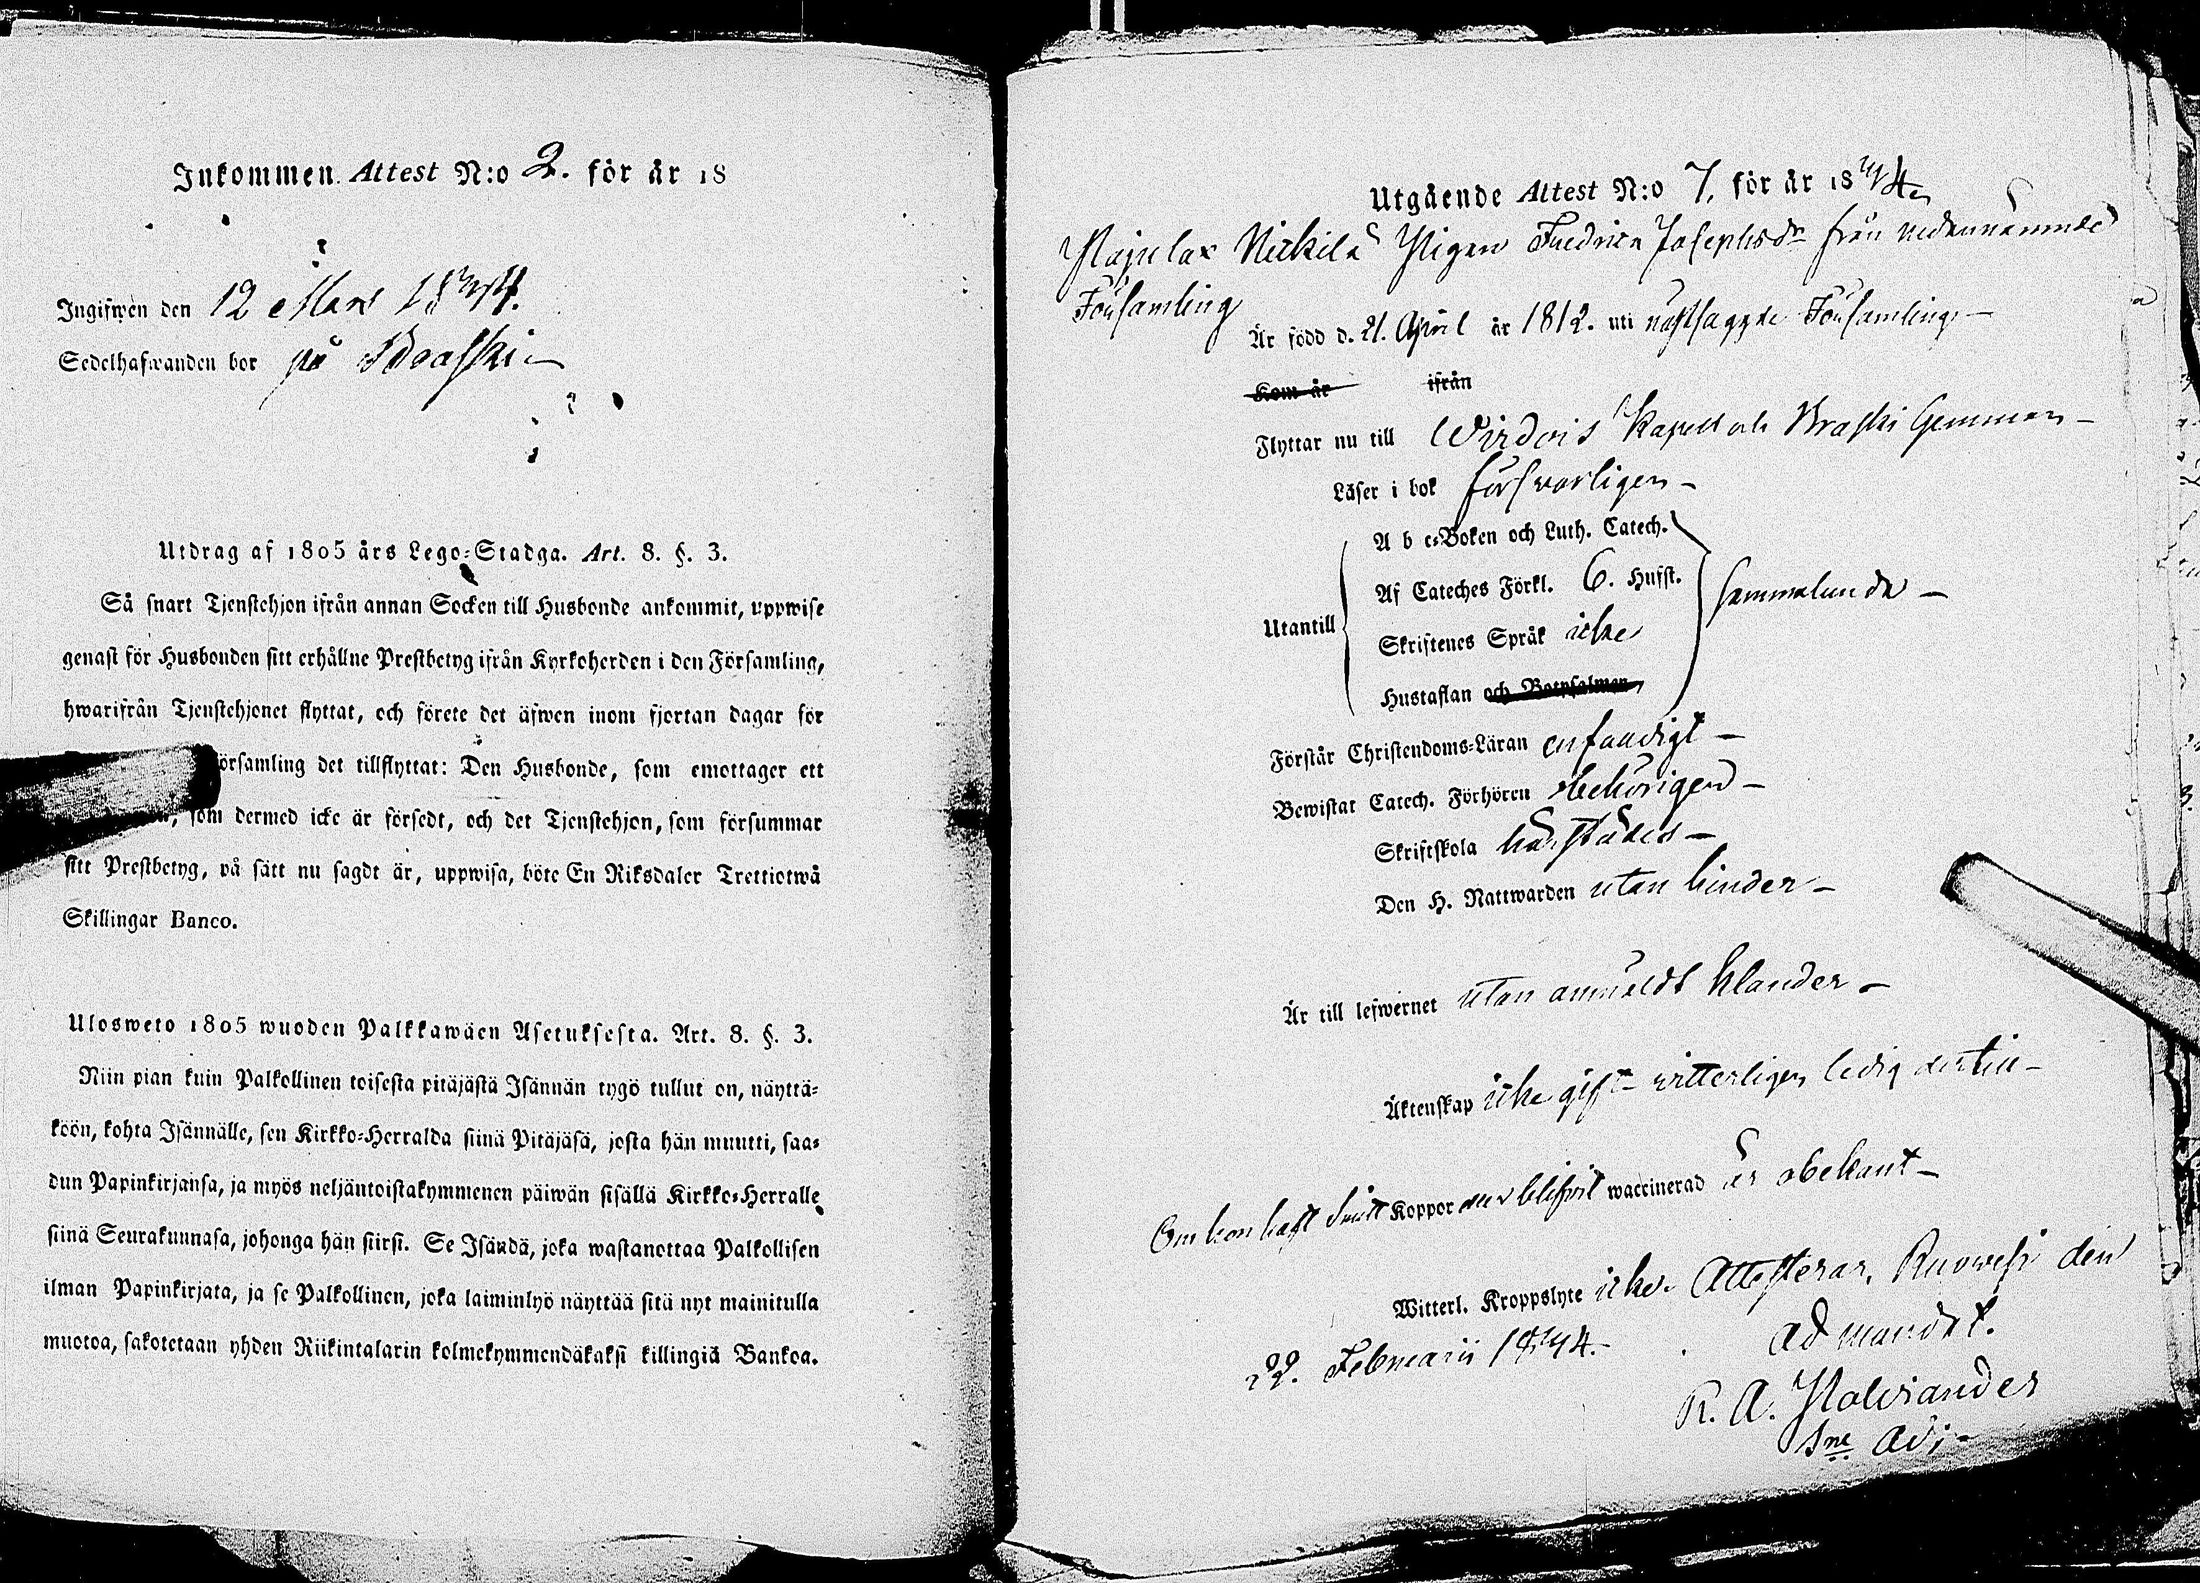 Inkommen Attest N:o 2. för år 18
Ingifwen den 12 Mars 1844.
Sedelhafwanden bor på
Utdrag af 1805 års Lego-Stadga. Art. 8. §. 3.
Så snart Tjenstehjon ifrån annan Socken till Husbonde ankommit, uppwise
genast för Husbonden sitt erhållne Prestbetyg ifrån Kyrkoherden i den Församling,
hwarifrån Tjenstehjonet flyttat, och förete det äfwen inom fjortan dagar för
örsamling det tillflyttat: Den Husbonde, som emottager ett
som dermed icke är försedt, och det Tjenstehjon, som försummar
sitt Prestbetyg, på sätt nu sagdt är, uppwisa, böte En Riksdaler Trettiotwå
Skillingar Banco.
Ulosweto 1805 wuoden Palkkawäen Asetuksesta. Art. 8. §. 3.
Niin pian kuin Palkollinen toisesta pitäjästä Isännän tygö tullut on, näyttä-
köön, kohta Isännälle, sen Kirkko-Herralda siinä Pitäjäsä, josta hän muutti, saa-
dun Papinkirjansa, ja myös neljäntoistakymmenen päiwän sisällä Kirkko-Herralle
siinä Seurakunnasa, johonga hän siirsi. Se Isändä, joka wastanottaa Palkollisen
ilman Papinkirjata, ja se Palkollinen, joka laiminlyö näyttää sitä nyt mainitulla
muotoa, sakotetaan yhden Riikintalarin kolmekymmendäkaksi killingiä Bankoa.
Utgående Attest N:o 7. för år 1844
Pajulax Nickilä Pigan Fredrica Josephsdr från nedannämnde
Församling
Är född d. 21. April år 1812. uti nästsagde Församling -
Kom år ifrån
Flyttar nu till Wirdois Kapell och Kraski Hemman -
Läser i bok försvarligen -
A b c-Boken och Luth. Catech.
Af Cateches Förkl. 6. Hufst.
Utantill
Skriftenes Språk icke
sammalunda -
Hustaflan och Botpsalmen
Förstår Christendoms-Läran enfaldigt -
Bewistat Catech. Förhören behörigen -
Skriftskola härstädes -
Den H. Nattwarden utan hinder -
Är till lefwernet utan anmäldt klander -
Äktenskap icke gift - witterligen ledig dertill -
Om hon haft Koppor eller blifvit waccinerad är obekant -
Witterl. Kroppslyte icke. Attesterar, Ruowesi den
22. Februarii 1844.
ad mandat.
R. A.
Adj -